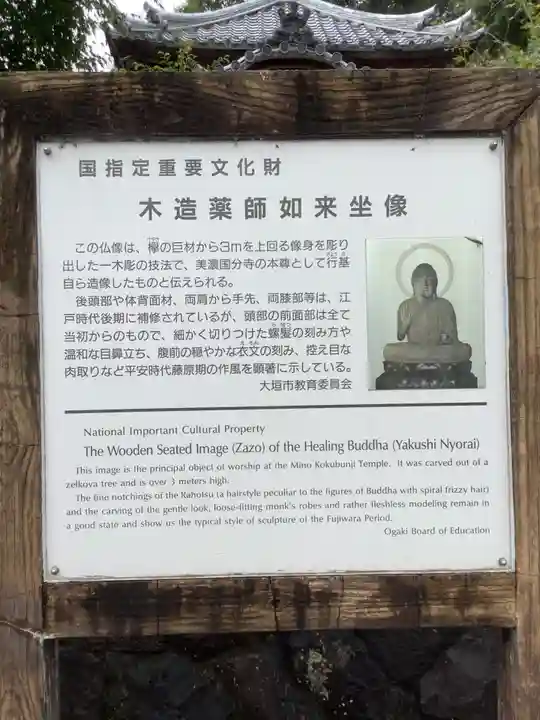 国指定重要文化財
木造薬師如来坐像
この仏像は、欅の巨材から3mを上回る像身を彫り
出した一木彫の技法で、美濃国分寺の本尊として行基
自ら造像したものと伝えられる。
後頭部や体背面材、両肩から手先、両膝部等は、江
戸時代後期に補修されているが、頭部の前面部は全て
当初からのもので、細かく切りつけた螺髪の刻み方や
温和な目鼻立ち、腹前の穏やかな衣文の刻み、控え目な
肉取りなど平安時代藤原期の作風を顕著に示している。
大垣市教育委員会
National Important Cultural Property
The Wooden Seated Image (Zazo) of the Healing Buddha (Yakushi Nyorai)
This image is the principal object of worship at the Mino Kokubunji Temple. It was carved out of a
zelkova tree and is over 3 meters high.
The fine notchings of the Rahotsu (a hairstyle peculiar to the figures of Buddha with spiral frizzy hair)
and the carving of the gentle look, loose-fitting monk's robes and rather fleshless modeling remain in
a good state and show us the typical style of sculpture of the Fujiwara Period.
Ogaki Board of Education